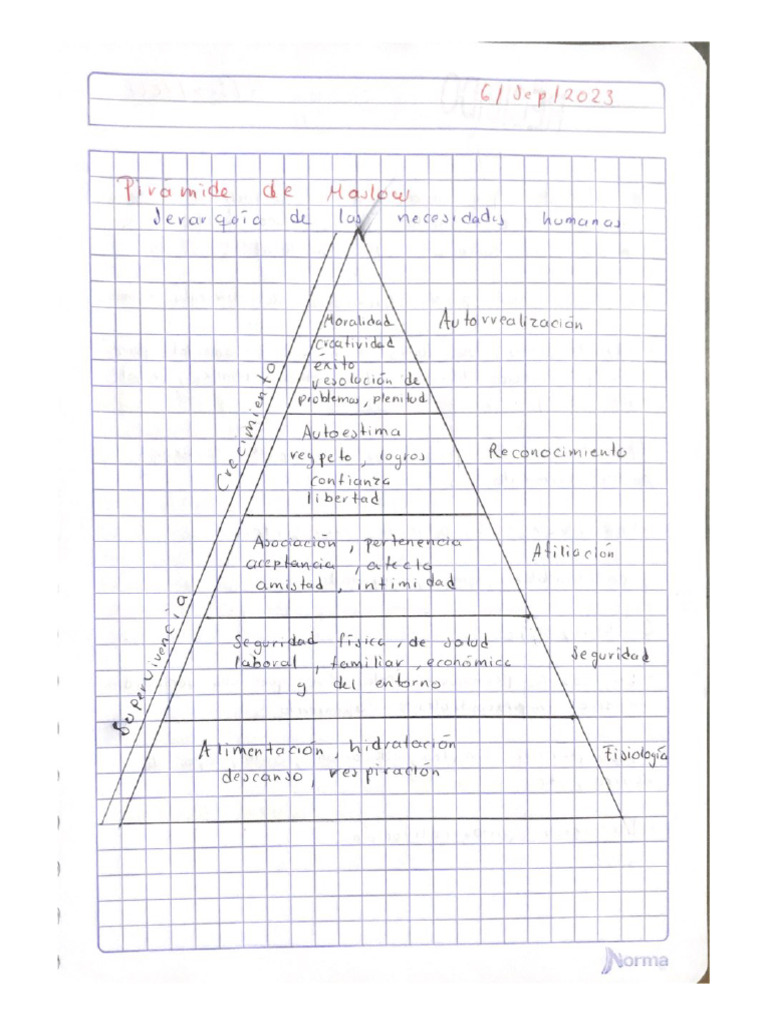 6/Sep/2023
Pirámide de Maslow
Jerarquía de las necesidades humanas
Moralidad
creatividad
éxito
resolución de
problemas, plenitud
Autorrealización
Crecimiento
Autoestima
respeto, logros
confianza
libertad
Reconocimiento
Asociación, pertenencia
aceptancia, afecto
amistad, intimidad
Afiliación
Supervivencia
Seguridad física, de salud
laboral, familiar, económica
y del entorno
Seguridad
Alimentación, hidratación
descanso, respiración
Fisiología
Norma